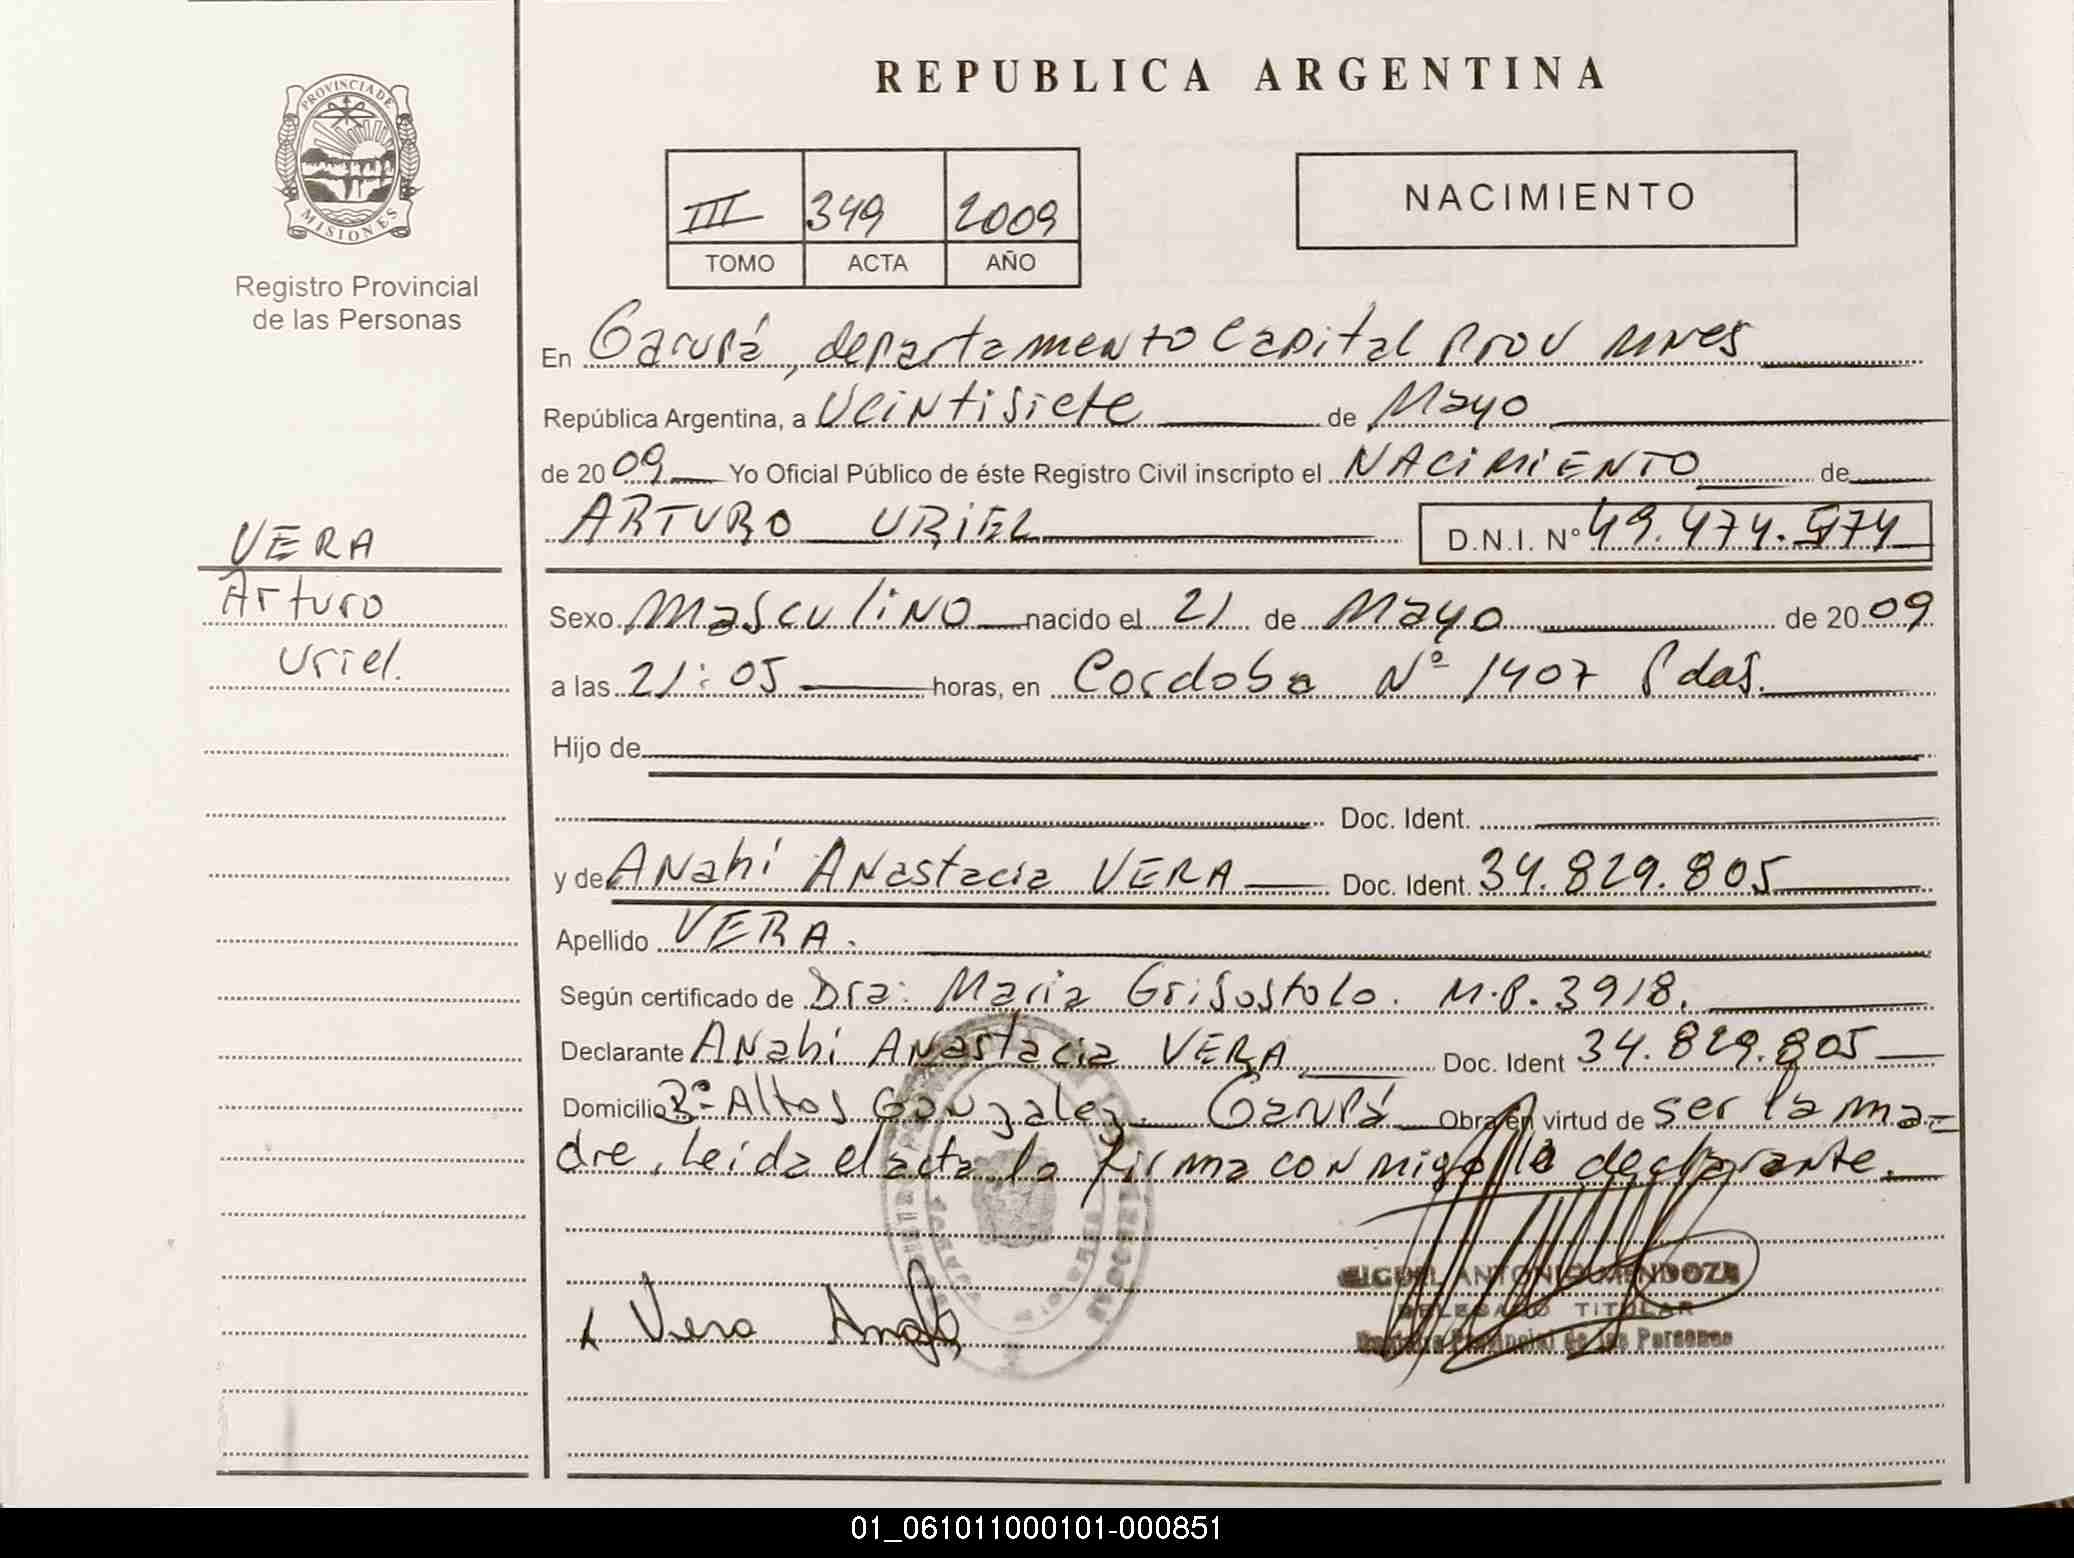 REPUBLICA ARGENTINA
PROVINCIA DE
MISIONES
Registro Provincial
de las Personas
III 349 2009
TOMO ACTA AÑO
NACIMIENTO
En Garupá, departamento Capital Prov Mnes
República Argentina, a Veintisiete de Mayo
de 2009 Yo Oficial Público de éste Registro Civil inscripto el NACIMIENTO de
ARTURO URIEL D.N.I. Nº 49.474.974
VERA
Arturo
Uriel.
Sexo Masculino nacido el 21 de Mayo de 2009
a las 21:05 horas, en Cordoba Nº 1407 Pdas.
Hijo de
Doc. Ident.
y de Anahí Anastacia VERA Doc. Ident. 34.829.805
Apellido VERA.
Según certificado de Dra: Maria Grisostolo. M.P. 3918.
Declarante Anahí Anastacia VERA Doc. Ident 34.829.805
Domicilio Bº Altos Gonzalez. Garupá Obra en virtud de ser la ma-
dre. Leída el acta la firma conmigo la declarante.
MIGUEL ANTONIO MENDOZA
DELEGADO TITULAR
Registro Provincial de las Personas
Vera Anahí
01_061011000101-000851